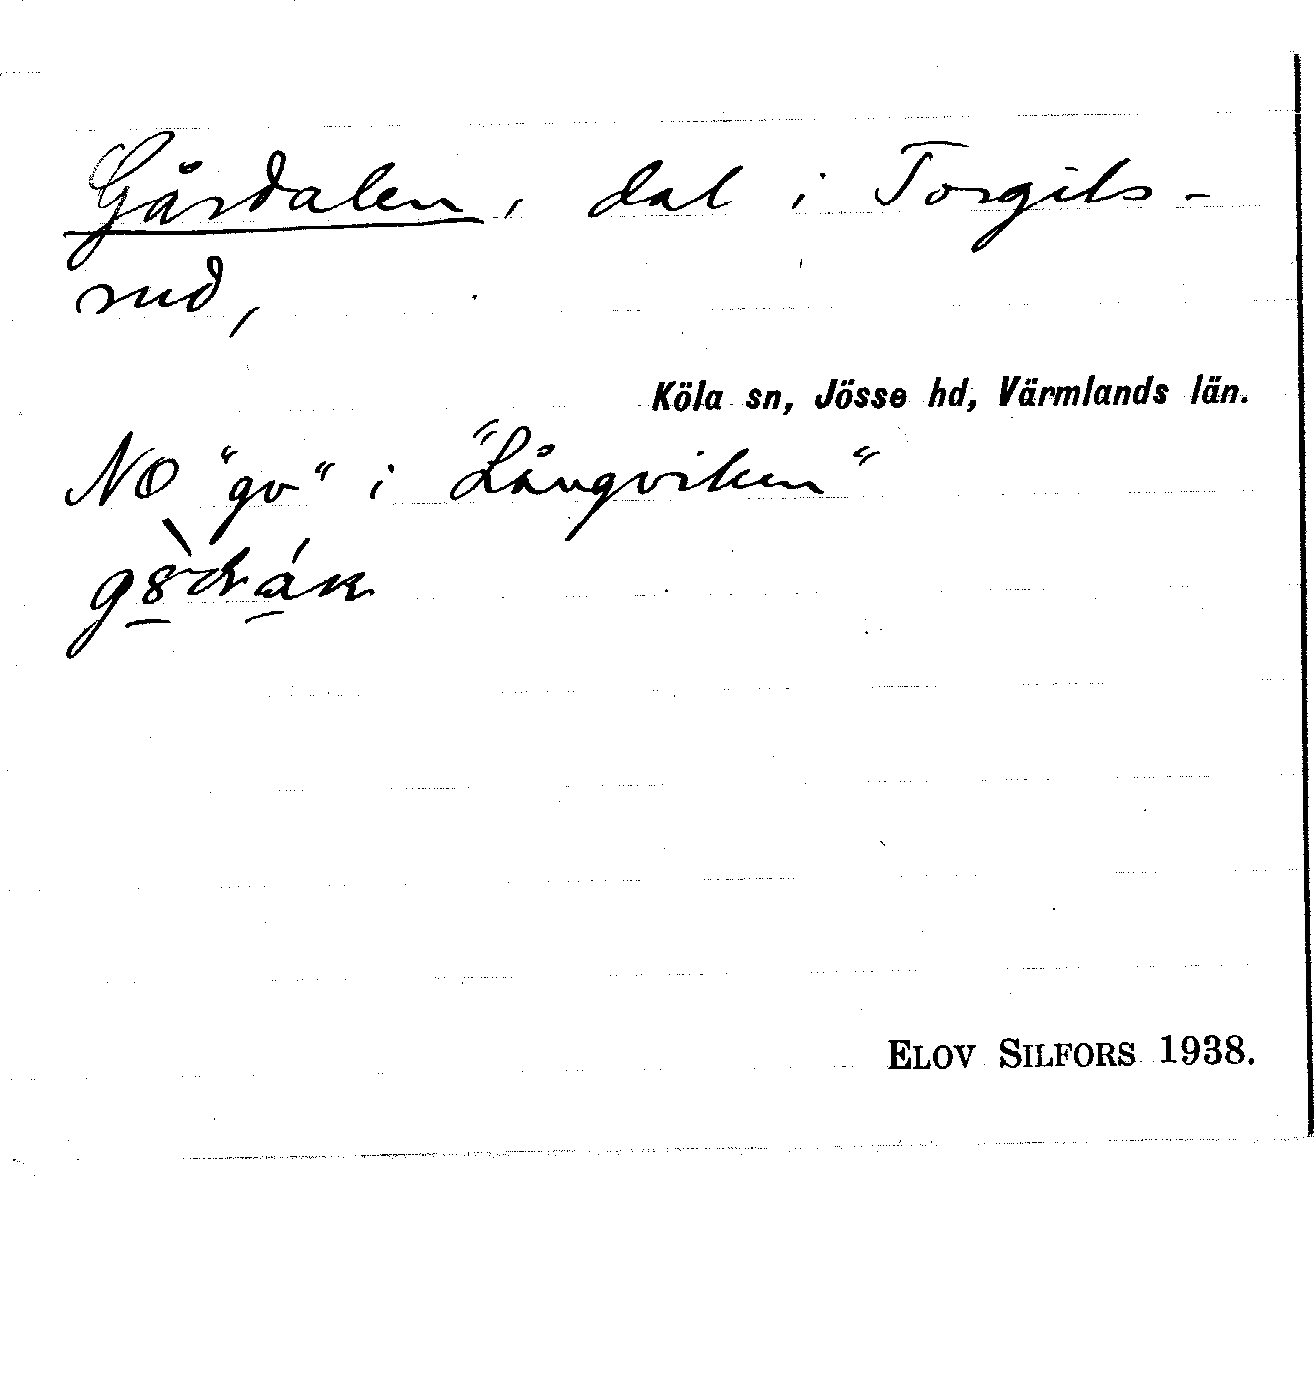 Gårdalen, dal i Torgils-
rud,
Köla sn, Jösse hd, Värmlands län.
NO "gv" i "Långviken"
ELOV SILFORS 1938.